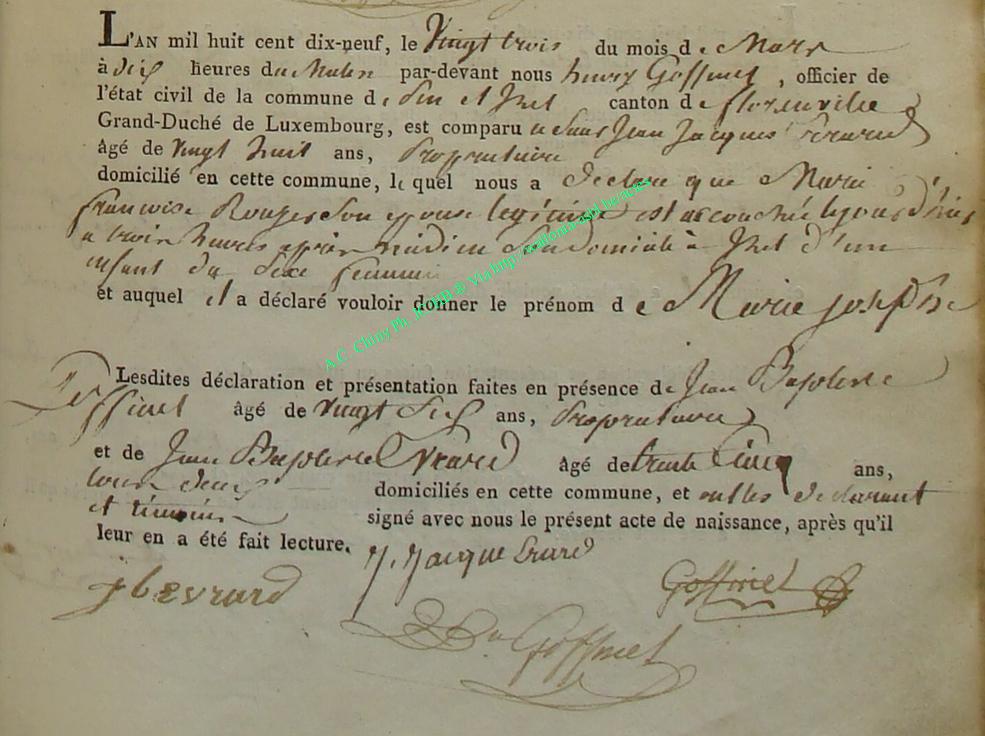 L'AN mil huit cent dix-neuf, le Vingt trois du mois de Mars
à dix heures du Matin par-devant nous henry Goffinet, officier de
l'état civil de la commune de et Izel canton de florenville
Grand-Duché de Luxembourg, est comparu le Sieur Jean Jacques Evrard
âgé de Vingt huit ans, Propriétaire
domicilié en cette commune, le quel nous a Declaré que Marie
françoise Rouger Son epouse legitime est accouchée le jour d'hier
a trois heures après midi en Son domicile à Izel d'un
enfant du Sexe feminin
et auquel il a déclaré vouloir donner le prénom de Marie josephe
A.C. Chiny Ph. ® Via http://
Lesdites déclaration et présentation faites en présence de Jean Baptiste
Goffinet âgé de Vingt Six ans, Proprietaire
et de Jean Baptiste Evrard âgé de trente Cinq ans,
tous deux domiciliés en cette commune, et ont les declarant
et témoins signé avec nous le présent acte de naissance, après qu'il
leur en a été fait lecture.
J. Jacque Evrard
jb evrard
Goffinet
Hn Goffinet